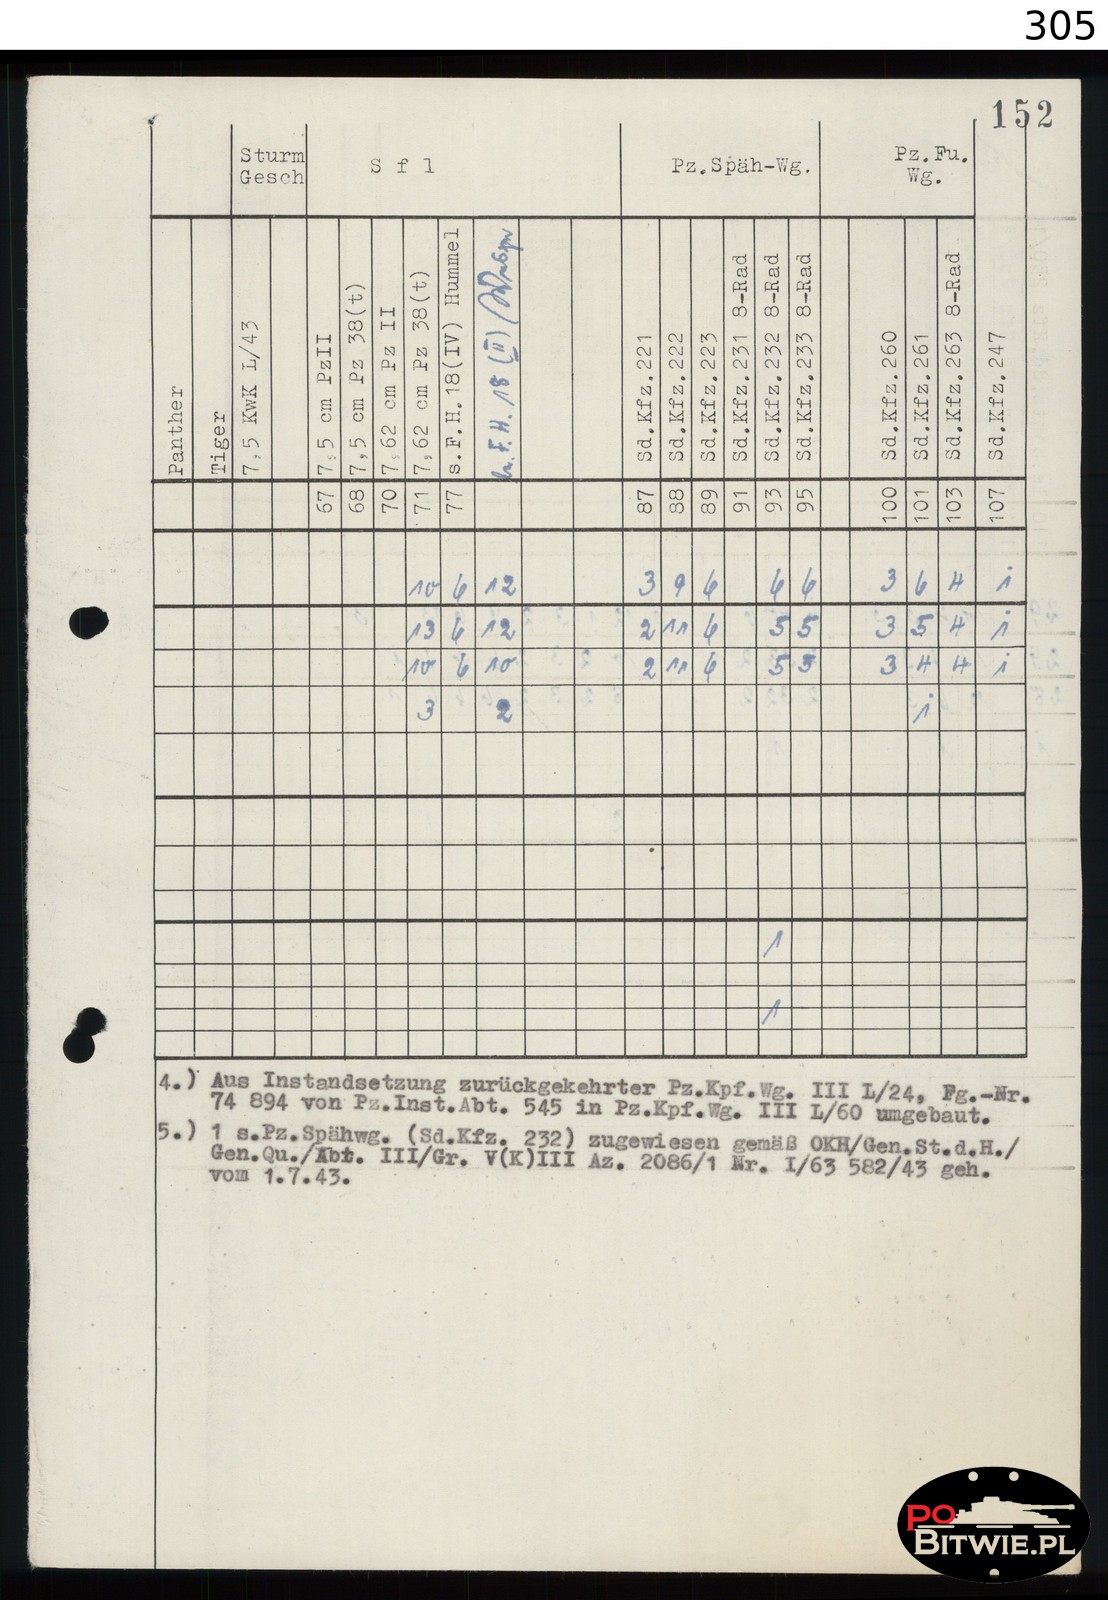 305
152
Sturm
Gesch
S f l
Pz.Späh-Wg.
Pz.Fu.
Wg.
Panther
Tiger
7,5 KwK L/43
7,5 cm PzII
7,5 cm Pz 38(t)
7,62 cm Pz II
7,62 cm Pz 38(t)
s.F.H.18(IV) Hummel
le. F.H. 18 (II) (Wespe
Sd.Kfz.221
Sd.Kfz.222
Sd.Kfz.223
Sd.Kfz.231 8-Rad
Sd.Kfz.232 8-Rad
Sd.Kfz.233 8-Rad
Sd.Kfz.260
Sd.Kfz.261
Sd.Kfz.263 8-Rad
Sd.Kfz.247
67 68 70 71 77 87 88 89 91 93 95 100 101 103 107
10 6 12 3 9 6 6 6 3 6 4 1
13 6 12 2 11 6 5 5 3 5 4 1
10 6 10 2 11 6 5 5 3 4 4 1
3 2 1
1
1
4.) Aus Instandsetzung zurückgekehrter Pz.Kpf.Wg. III L/24, Fg.-Nr.
74 894 von Pz.Inst.Abt. 545 in Pz.Kpf.Wg. III L/60 umgebaut.
5.) 1 s.Pz.Spähwg. (Sd.Kfz. 232) zugewiesen gemäß OKH/Gen.St.d.H./
Gen.Qu./Abt. III/Gr. V(K)III Az. 2086/1 Nr. I/63 582/43 geh.
vom 1.7.43.
PO
BITWIE.PL